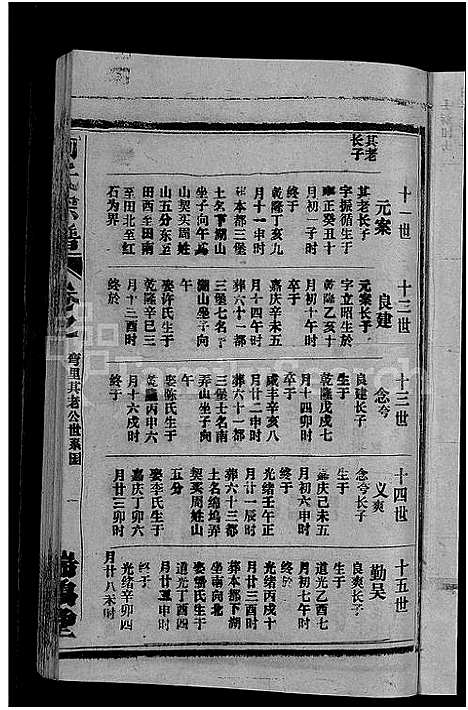 其老
长子
十一世
元案
其老长子
字振循生于
雍正癸丑十
月初一子时
终于
乾隆丁亥九
月十一申时
葬本都三堡
土名下湖山
坐子向午
山契买周姓
山五分东至
田西至田南
至田北至红
石为界
十三世
良建
元案长子
字立昭生於
乾隆乙亥十
月初十午时
卒于
嘉庆辛未五
月十四午时
葬六十一都
三堡七名南
湖山坐子向
午
娶许氏生于
乾隆辛巳三
月十三酉时
终於
十三世
念兮
良建长子
生于
乾隆戊戌七
月十四卯时
卒于
咸丰辛亥八
月廿二申时
葬六十一都
三堡土名南
弄山坐子向
午
娶陈氏生于
乾隆丙申六
月十六戌时
终于
十四世
义爽
念兮长子
生于
嘉庆己未五
月初六申时
终于
光绪壬午正
月廿一辰时
葬六十三都
土名绵坞弄
契买周姓山
五分
娶李氏生于
嘉庆丁卯六
月廿三卯时
十五世
勤吴
良爽长子
生于
道光乙酉七
月初七午时
终於
光绪丙戌十
月廿三酉时
葬本都下湖
坐南向北
娶氏生于
道光丁酉四
月廿五申时
终于
光绪辛卯四
月廿八未时
弯里其老公世系图
一